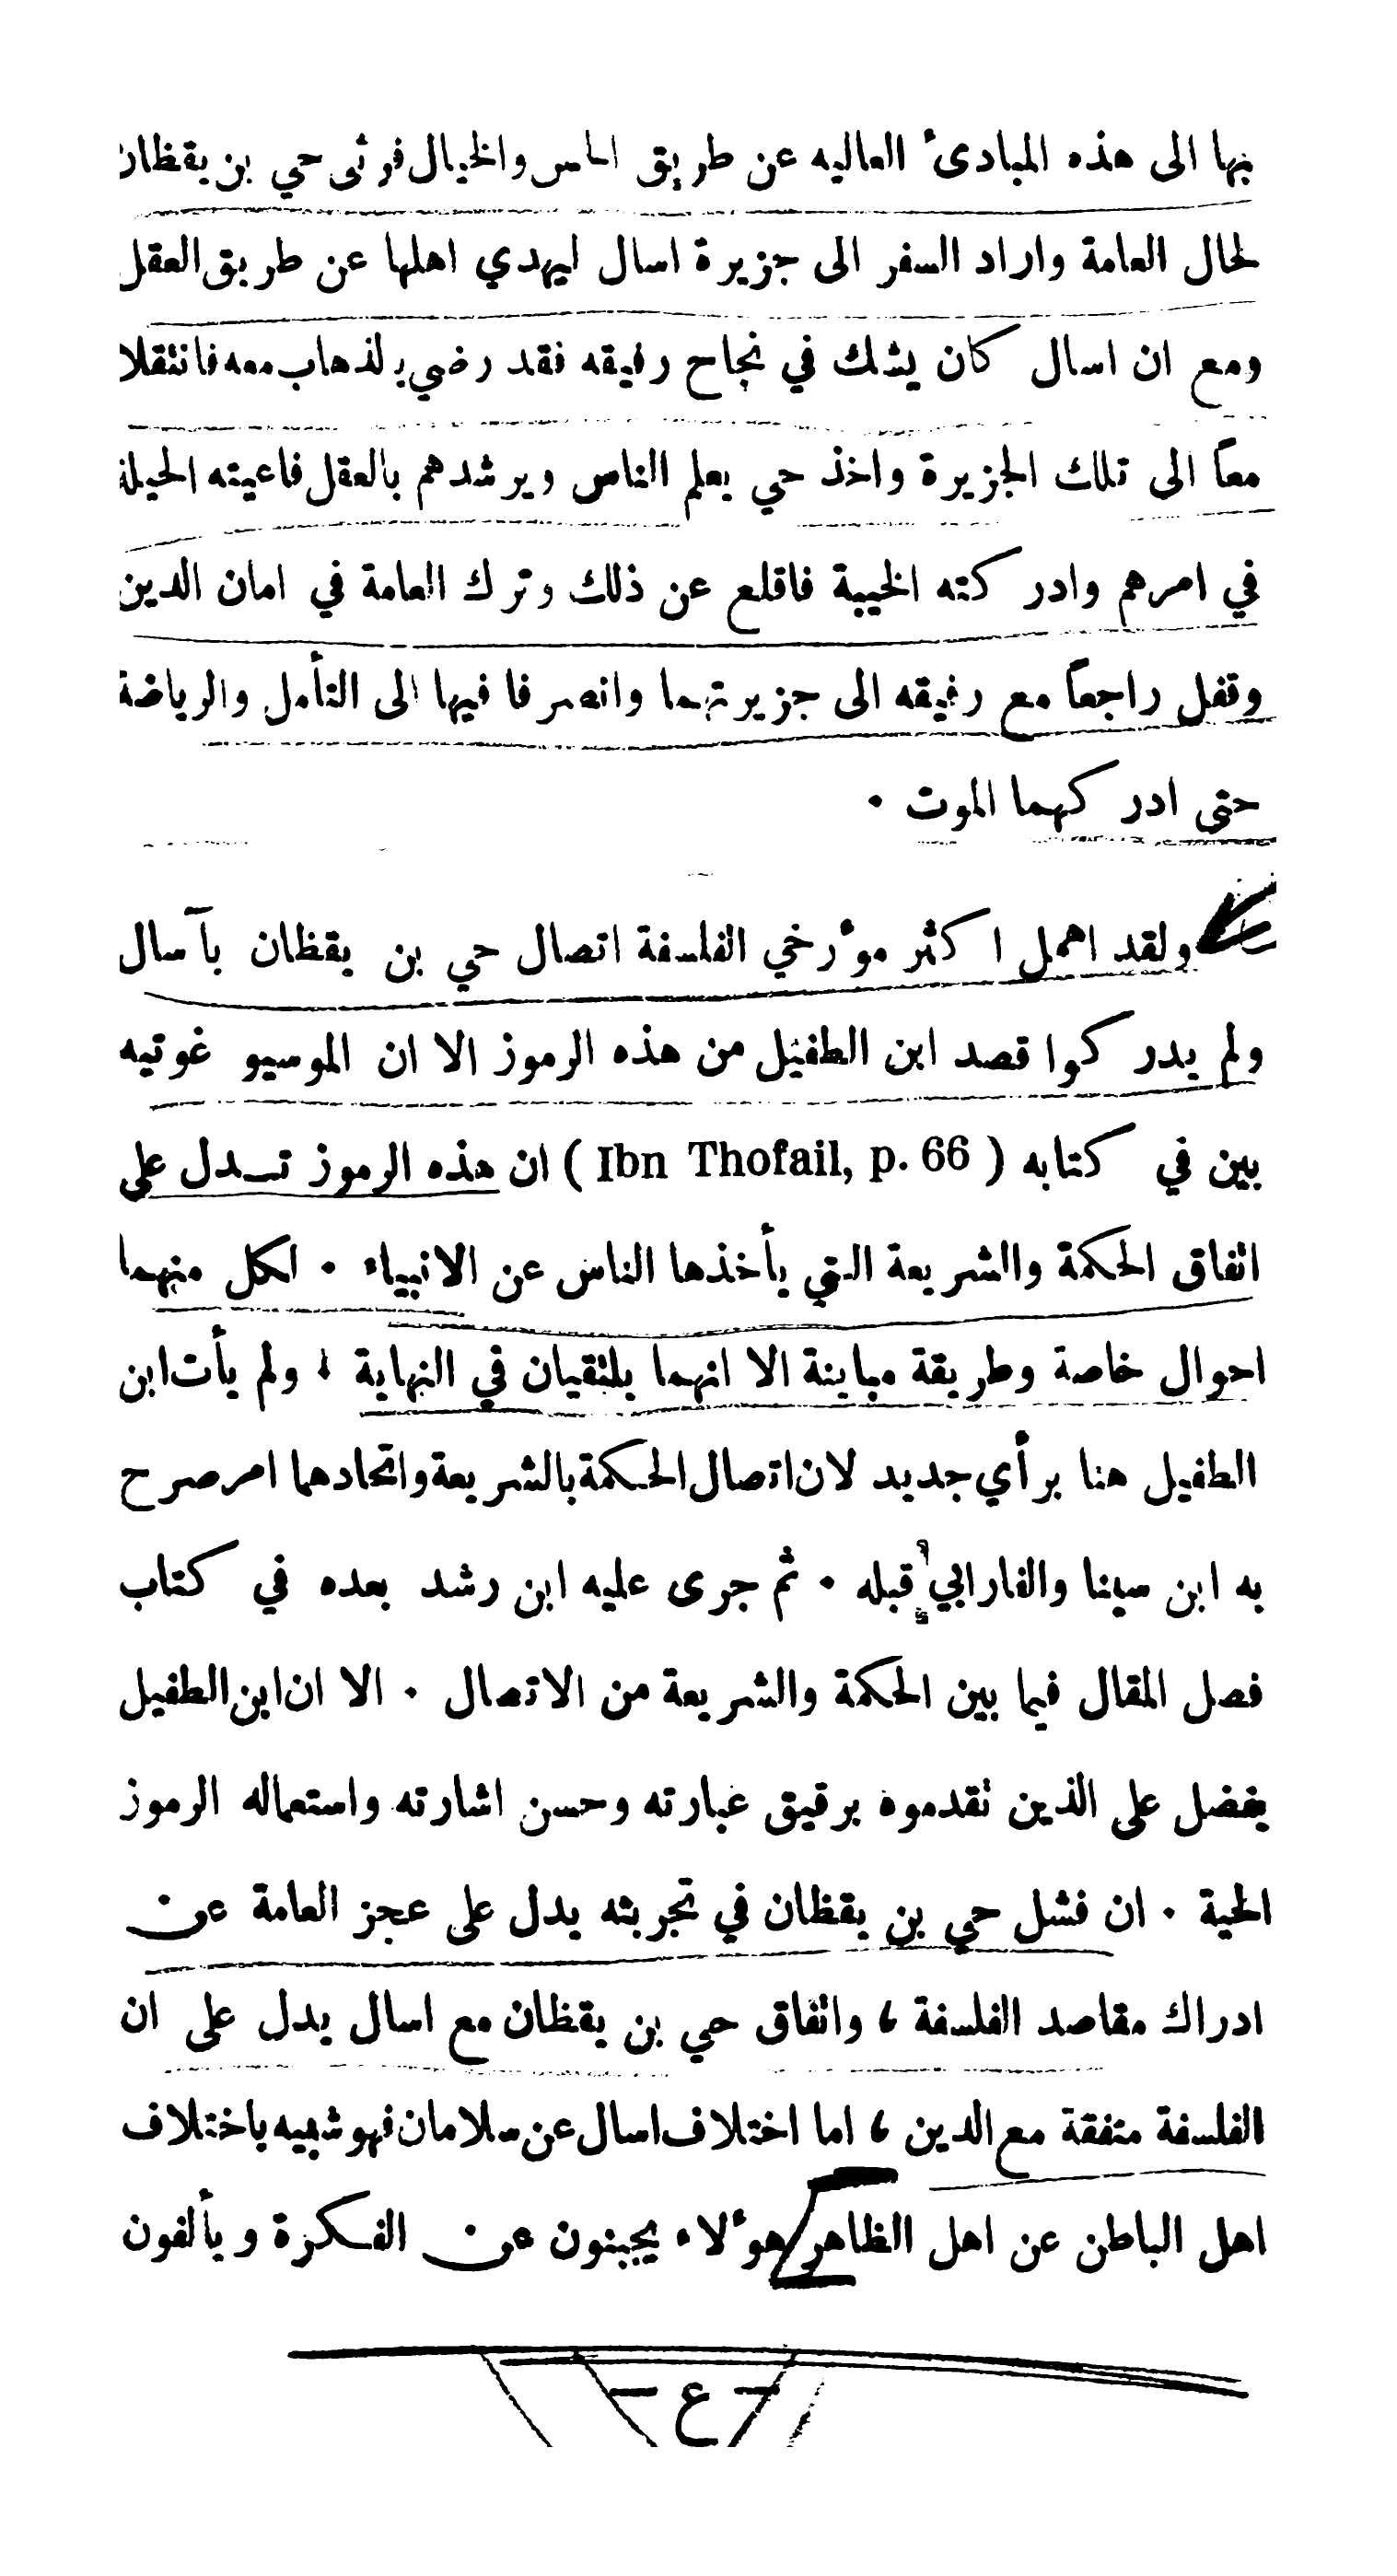 بها الى هذه المبادئ العاليه عن طريق الحس والخيال فرثى حي بن يقظان
لحال العامة واراد السفر الى جزيرة اسال ليهدي اهلها عن طريق العقل
ومع ان اسال كان يشك في نجاح رفيقه فقد رضي بلذهاب معه فانتقلا
معاً الى تلك الجزيرة واخذ حي يعلم الناس ويرشدهم بالعقل فاعيته الحيلة
في امرهم وادركته الخيبة فاقلع عن ذلك وترك العامة في امان الدين
وقفل راجعاً مع رفيقه الى جزيرتهما وانصرفا فيها الى التأمل والرياضة
حتى ادركهما الموت ٠
ولقد اهمل اكثر مؤرخي الفلسفة اتصال حي بن يقظان بآسال
ولم يدركوا قصد ابن الطفيل من هذه الرموز الا ان الموسيو غوتيه
بين في كتابه ( Ibn Thofail, p. 66 ) ان هذه الرموز تـدل على
اتفاق الحكمة واالشريعة التي يأخذها الناس عن الانبياء ٠ لكل منهما
احوال خاصة وطريقة مباينة الا انهما يلتقيان في النهاية ، ولم يأت ابن
الطفيل هنا برأي جديد لان اتصال الحكمة بالشريعة واتحادهما امر صرح
به ابن سينا والفارابي قبله ٠ ثم جرى عليه ابن رشد بعده في كتاب
فصل المقال فيما بين الحكمة والشريعة من الاتصال ٠ الا ان ابن الطفيل
يفضل على الذين تقدموه برقيق عبارته وحسن اشارته واستعماله الرموز
الحية ٠ ان فشل حي بن يقظان في تجربته يدل على عجز العامة عن
ادراك مقاصد الفلسفة ، واتفاق حي بن يقظان مع اسال يدل على ان
الفلسفة متفقة مع الدين ، اما اختلاف اسال عن سلامان فهو شبيه باختلاف
اهل الباطن عن اهل الظاهر هؤلاء يجبنون عن الفكرة ويألفون
— ع —